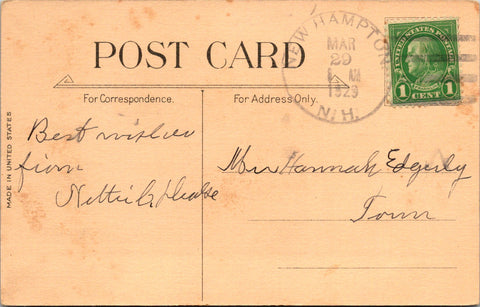 POST CARD
NEW HAMPTON
MAR
29
AM
1929
N.H.
UNITED STATES POSTAGE
1 CENT 1
For Correspondence.
For Address Only.
MADE IN UNITED STATES
Best wishes
from
Hannah Edgerly
Town